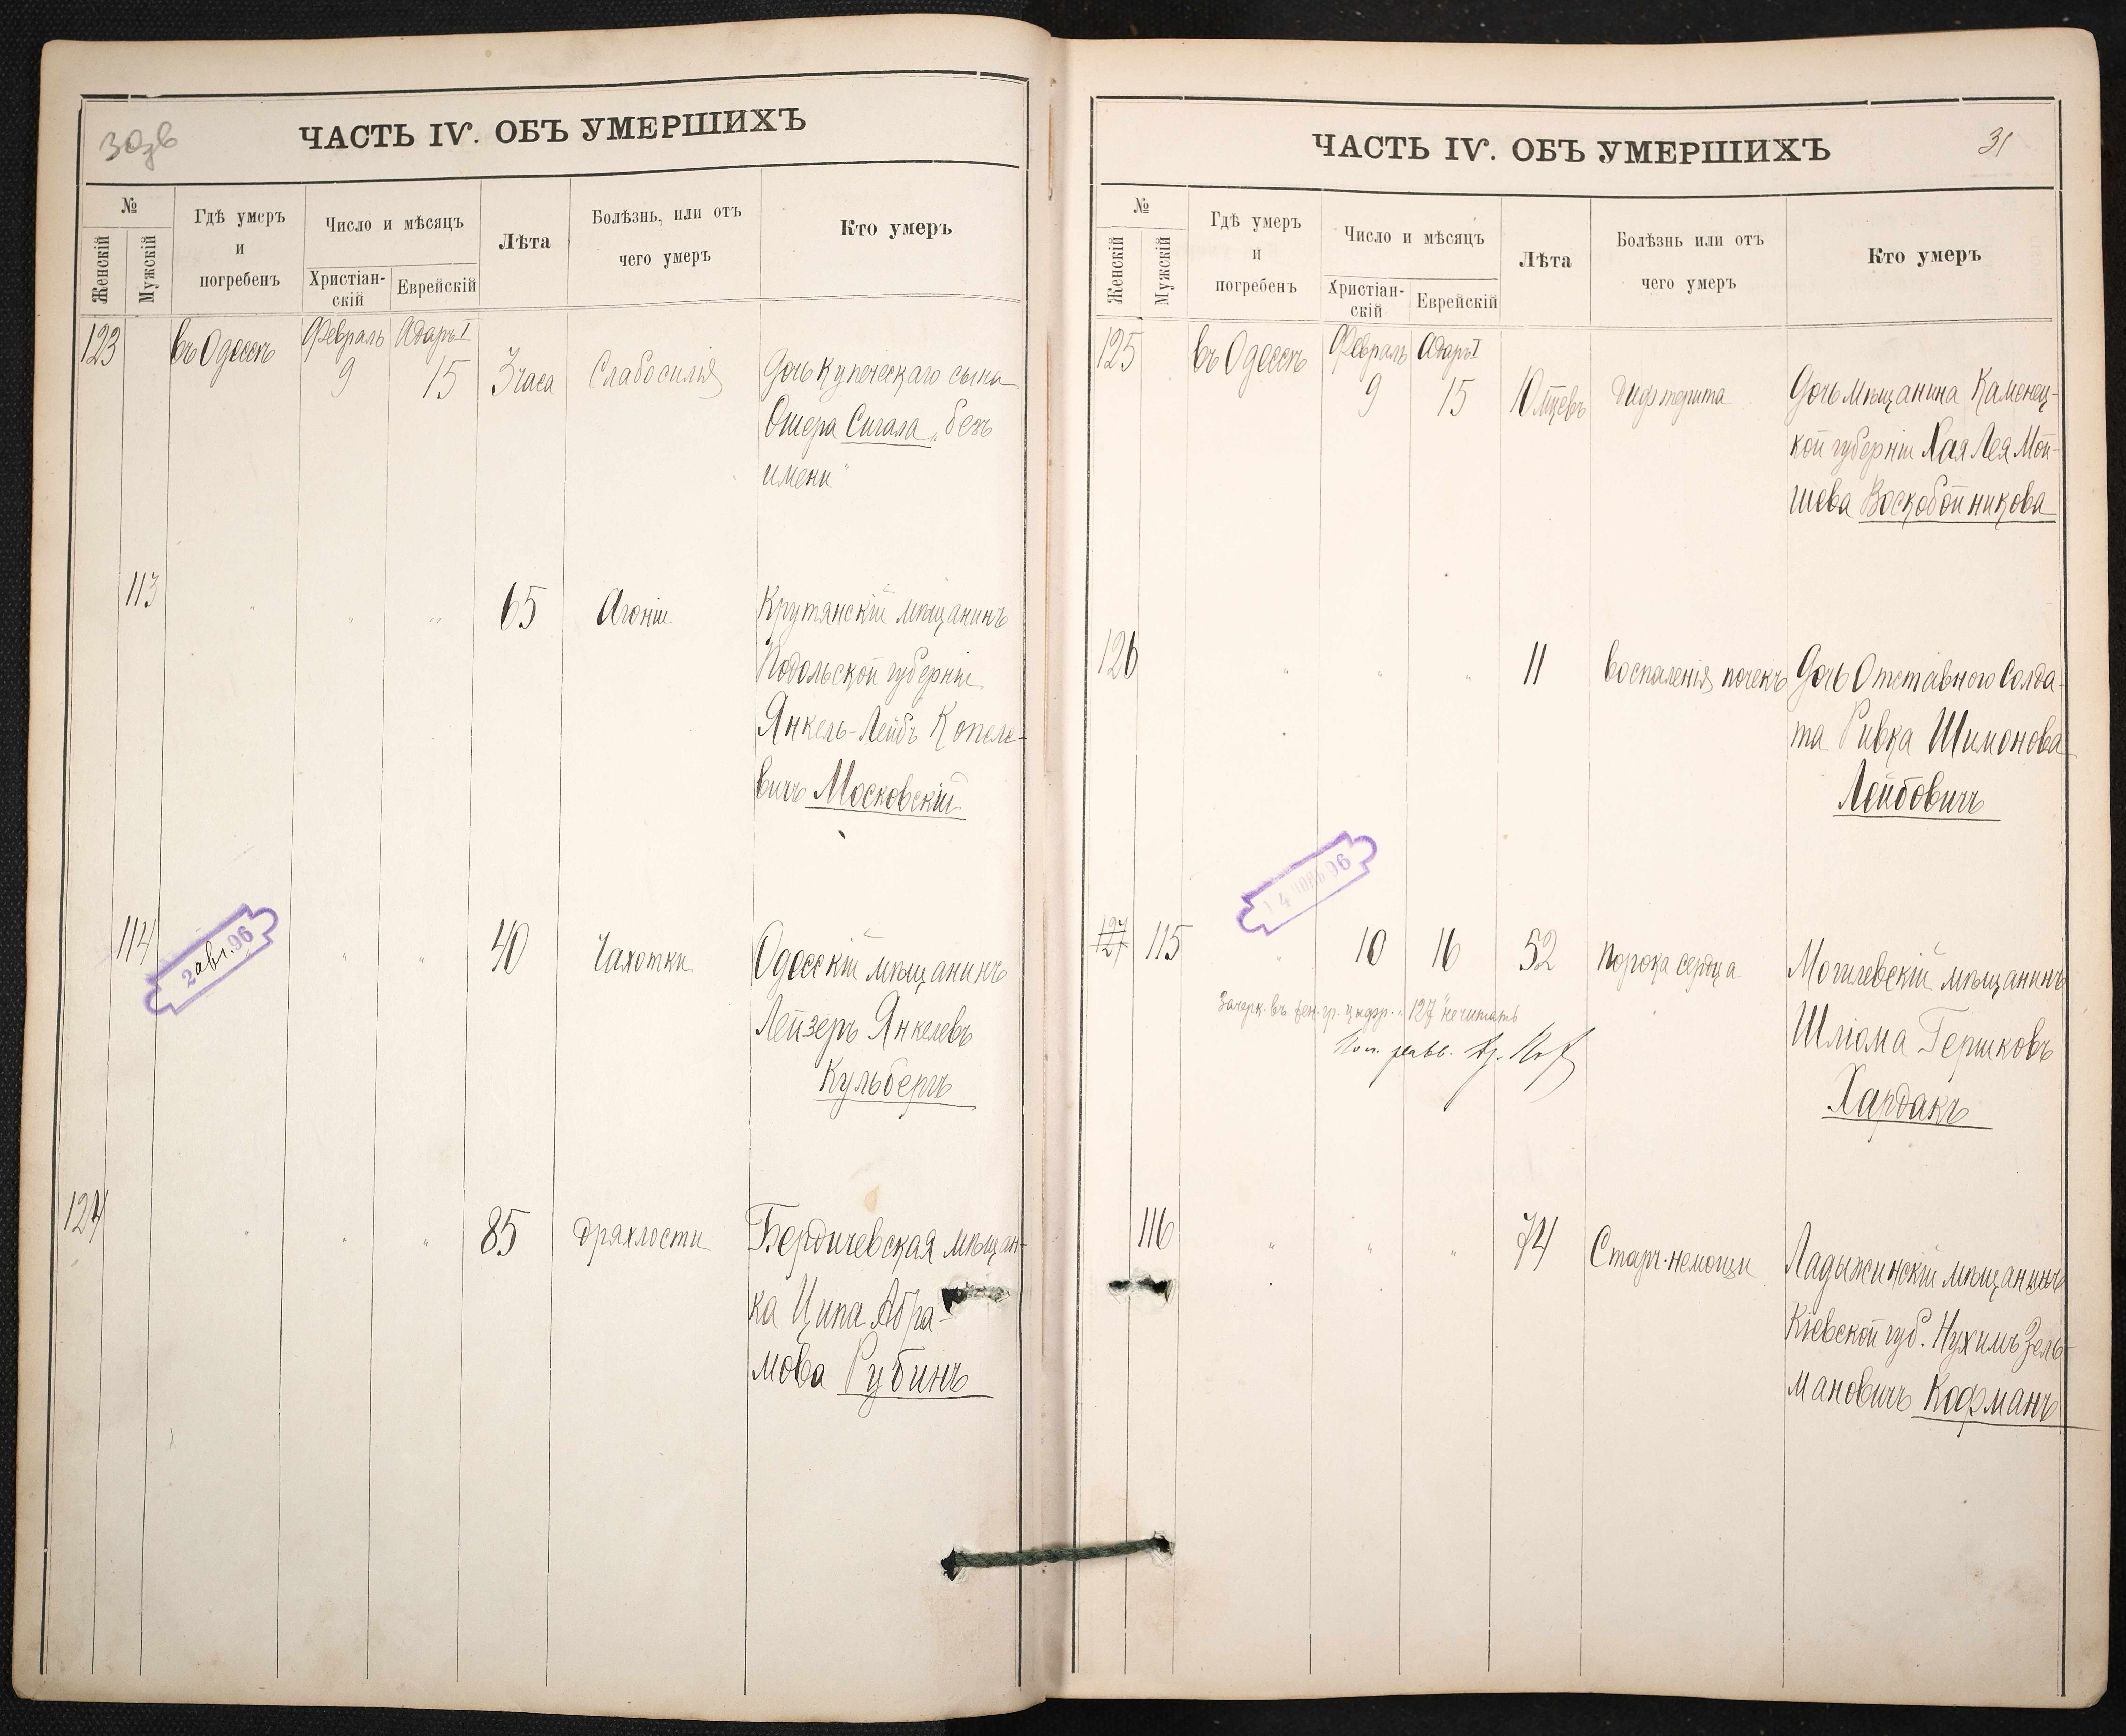 30зв
ЧАСТЬ IV. ОБЪ УМЕРШИХЪ
№
Женскій
Мужскій
Гдѣ умеръ
и
погребенъ
Число и мѣсяцъ
Христіан-
скій
Еврейскій
Лѣта
Болѣзнь, или отъ
чего умеръ
Кто умеръ
123 въ Одессѣ Февраль Адаръ I
9 15 3 часа Слабосилія Дочь купеческаго сына
Ошера Сигала „безъ
имени"
113 " " " 65 Агоніи Крутянскій мѣщанинъ
Подольской губерніи
Янкель-Лейбъ Копеле-
вичъ Московскій
114 2 авг. 96 " " 40 Чахотки Одесскій мѣщанинъ
Лейзеръ Янкелевъ
Кульбергъ
124 " " " 85 Дряхлости Бердичевская мѣщан-
ка Ципа Абра-
мова Рубинъ
ЧАСТЬ IV. ОБЪ УМЕРШИХЪ
31
№
Женскій
Мужскій
Гдѣ умеръ
и
погребенъ
Число и мѣсяцъ
Христіан-
скій
Еврейскій
Лѣта
Болѣзнь или отъ
чего умеръ
Кто умеръ
125 въ Одессѣ Февраль Адаръ I
9 15 10 мцевъ Дифтерита Дочь мѣщанина Каменец-
кой губерніи Хая Лея Мой-
шева Воскобойникова
126 " " " 11 Воспаленія почекъ Дочь Отставного Солда-
та Ривка Шимонова
Лейбовичъ
14 96
127 115 " 10 16 52 Порока сердца Могилевскій мѣщанинъ
Шліома Гершковъ
Хардакъ
Зачерк. въ жен. гр. цифр. „127" не читать
116 " " " 74 Старч. немощи Ладыжинскій мѣщанинъ
Кіевской губ. Нухимъ Зель-
мановичъ Кофманъ